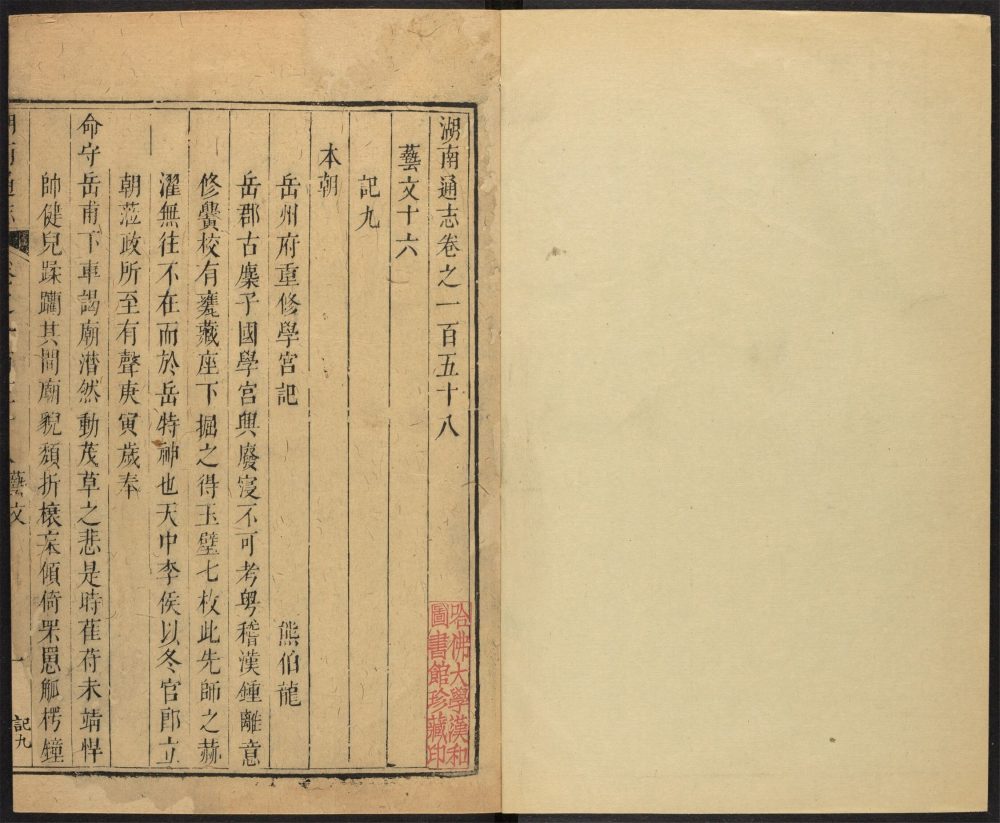 湖南通志卷之一百五十八
藝文十六
記九
本朝
岳州府重修學宮記 熊伯龍
岳郡古麋子國學宮興廢寖不可考粤稽漢鍾離意
修黌校有甕藏座下掘之得玉璧七枚此先師之赫
濯無往不在而於岳特神也天中李侯以冬官郎立
朝蒞政所至有聲庚寅歲奉
命守岳甫下車謁廟潸然動茂草之悲是時萑苻未靖悍
帥健兒蹂躪其間廟貌頹折榱桷傾倚罘罳觚楞鐘
湖南通志
藝文
一
記九
哈佛大學漢和
圖書館珍藏印